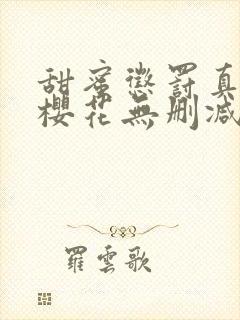 甜蜜懲罰真
櫻花無刪減
羅雲歌